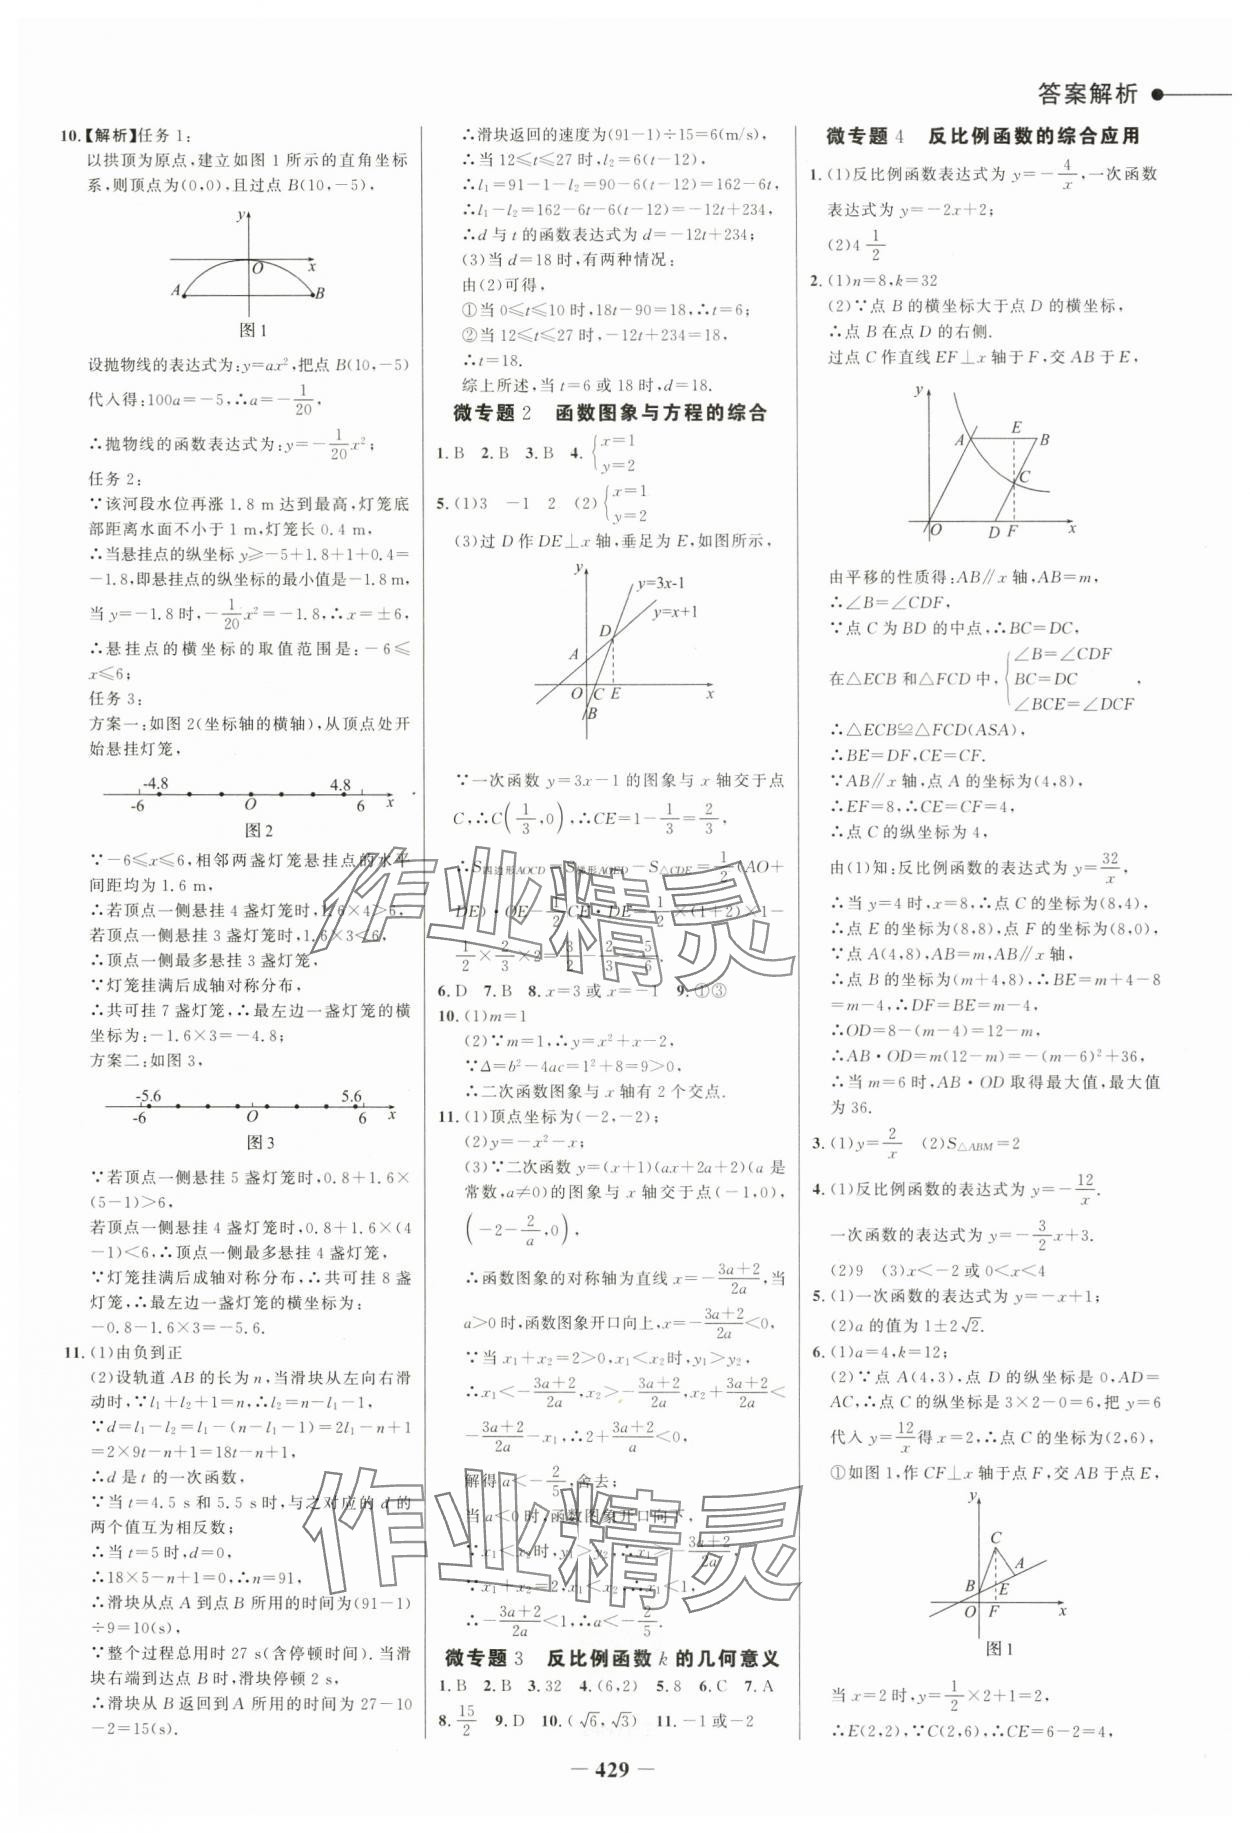 答案解析
10.【解析】任务1:
以拱顶为原点,建立如图1所示的直角坐标
系,则顶点为(0,0),且过点B(10,-5),
y
O
x
A
B
图1
设抛物线的表达式为:y=ax²,把点B(10,-5)
代入得:100a=-5,∴a=-1/20,
∴抛物线的函数表达式为:y=-1/20x²;
任务2:
∵该河段水位再涨1.8 m达到最高,灯笼底
部距离水面不小于1 m,灯笼长0.4 m,
∴当悬挂点的纵坐标y≥-5+1.8+1+0.4=
-1.8,即悬挂点的纵坐标的最小值是-1.8 m,
当y=-1.8时,-1/20x²=-1.8,∴x=±6,
∴悬挂点的横坐标的取值范围是:-6≤
x≤6;
任务3:
方案一:如图2(坐标轴的横轴),从顶点处开
始悬挂灯笼,
-4.8 4.8
-6 O 6 x
图2
∵-6≤x≤6,相邻两盏灯笼悬挂点的水平
间距均为1.6 m,
∴若顶点一侧悬挂4盏灯笼时,1.6×4>6,
若顶点一侧悬挂3盏灯笼时,1.6×3<6,
∴顶点一侧最多悬挂3盏灯笼,
∵灯笼挂满后成轴对称分布,
∴共可挂7盏灯笼,∴最左边一盏灯笼的横
坐标为:-1.6×3=-4.8;
方案二:如图3,
-5.6 5.6
-6 O 6 x
图3
∵若顶点一侧悬挂5盏灯笼时,0.8+1.6×
(5-1)>6,
若顶点一侧悬挂4盏灯笼时,0.8+1.6×(4
-1)<6,∴顶点一侧最多悬挂4盏灯笼,
∵灯笼挂满后成轴对称分布,∴共可挂8盏
灯笼,∴最左边一盏灯笼的横坐标为:
-0.8-1.6×3=-5.6.
11.(1)由负到正
(2)设轨道AB的长为n,当滑块从左向右滑
动时,∵l₁+l₂+1=n,∴l₂=n-l₁-1,
∵d=l₁-l₂=l₁-(n-l₁-1)=2l₁-n+1
=2×9t-n+1=18t-n+1,
∴d是t的一次函数,
∵当t=4.5 s和5.5 s时,与之对应的d的
两个值互为相反数;
∴当t=5时,d=0,
∴18×5-n+1=0,∴n=91,
∴滑块从点A到点B所用的时间为(91-1)
÷9=10(s),
∵整个过程总用时27 s(含停顿时间).当滑
块右端到达点B时,滑块停顿2 s,
∴滑块从B返回到A所用的时间为27-10
-2=15(s).
∴滑块返回的速度为(91-1)÷15=6(m/s),
∴当12≤t≤27时,l₂=6(t-12),
∴l₁=91-1-l₂=90-6(t-12)=162-6t,
∴l₁-l₂=162-6t-6(t-12)=-12t+234,
∴d与t的函数表达式为d=-12t+234;
(3)当d=18时,有两种情况:
由(2)可得,
①当0≤t≤10时,18t-90=18,∴t=6;
②当12≤t≤27时,-12t+234=18,
∴t=18.
综上所述,当t=6或18时,d=18.
微专题2 函数图象与方程的综合
1.B 2.B 3.B 4.{x=1
y=2
5.(1)3 -1 2 (2){x=1
y=2
(3)过D作DE⊥x轴,垂足为E,如图所示,
y
y=3x-1
y=x+1
D
A
O C E x
B
∵一次函数y=3x-1的图象与x轴交于点
C,∴C(1/3,0),∴CE=1-1/3=2/3,
∴S四边形AOCD=S梯形AOED-S△CDE=1/2(AO+
DE)·OE-1/2CE·DE=1/2×(1+2)×1-
1/2×2/3×2=3/2-2/3=5/6.
6.D 7.B 8.x=3或x=-1 9.①③
10.(1)m=1
(2)∵m=1,∴y=x²+x-2,
∵Δ=b²-4ac=1²+8=9>0,
∴二次函数图象与x轴有2个交点.
11.(1)顶点坐标为(-2,-2);
(2)y=-x²-x;
(3)∵二次函数y=(x+1)(ax+2a+2)(a是
常数,a≠0)的图象与x轴交于点(-1,0),
(-2-2/a,0),
∴函数图象的对称轴为直线x=-(3a+2)/2a,当
a>0时,函数图象开口向上,x=-(3a+2)/2a<0,
∵当x₁+x₂=2>0时,x₁<x₂时,y₁>y₂,
∴x₁<-(3a+2)/2a,x₂>-(3a+2)/2a,x₂+(3a+2)/2a<
-(3a+2)/2a-x₁,∴2+(3a+2)/a<0,
解得a<-2/5,舍去;
当a<0时,函数图象开口向下,
∵x₁<x₂时,y₁>y₂,∴x₁≥-(3a+2)/2a,
∵x₁+x₂=2,x₁<x₂,∴x₁<1,
∴-(3a+2)/2a<1,∴a<-2/5.
微专题3 反比例函数k的几何意义
1.B 2.B 3.32 4.(6,2) 5.8 6.C 7.A
8.15/2 9.D 10.(√6,√3) 11.-1或-2
微专题4 反比例函数的综合应用
1.(1)反比例函数表达式为y=-4/x,一次函数
表达式为y=-2x+2;
(2)4 1/2
2.(1)n=8,k=32
(2)∵点B的横坐标大于点D的横坐标,
∴点B在点D的右侧.
过点C作直线EF⊥x轴于F,交AB于E,
y
A E B
C
O D F x
由平移的性质得:AB∥x轴,AB=m,
∴∠B=∠CDF,
∵点C为BD的中点,∴BC=DC,
在△ECB和△FCD中,{∠B=∠CDF
BC=DC
∠BCE=∠DCF,
∴△ECB≌△FCD(ASA),
∴BE=DF,CE=CF.
∵AB∥x轴,点A的坐标为(4,8),
∴EF=8,∴CE=CF=4,
∴点C的纵坐标为4,
由(1)知:反比例函数的表达式为y=32/x,
∴当y=4时,x=8,∴点C的坐标为(8,4),
∴点E的坐标为(8,8),点F的坐标为(8,0),
∵点A(4,8),AB=m,AB∥x轴,
∴点B的坐标为(m+4,8),∴BE=m+4-8
=m-4,∴DF=BE=m-4,
∴OD=8-(m-4)=12-m,
∴AB·OD=m(12-m)=-(m-6)²+36,
∴当m=6时,AB·OD取得最大值,最大值
为36.
3.(1)y=2/x (2)S△ABM=2
4.(1)反比例函数的表达式为y=-12/x.
一次函数的表达式为y=-3/2x+3.
(2)9 (3)x<-2或0<x<4
5.(1)一次函数的表达式为y=-x+1;
(2)a的值为1±2√2.
6.(1)a=4,k=12;
(2)∵点A(4,3),点D的纵坐标是0,AD=
AC,∴点C的纵坐标是3×2-0=6,把y=6
代入y=12/x得x=2,∴点C的坐标为(2,6),
①如图1,作CF⊥x轴于点F,交AB于点E,
y
C
A
B E
O F x
图1
当x=2时,y=1/2×2+1=2,
∴E(2,2),∵C(2,6),∴CE=6-2=4,
作业精灵
作业精灵
— 429 —